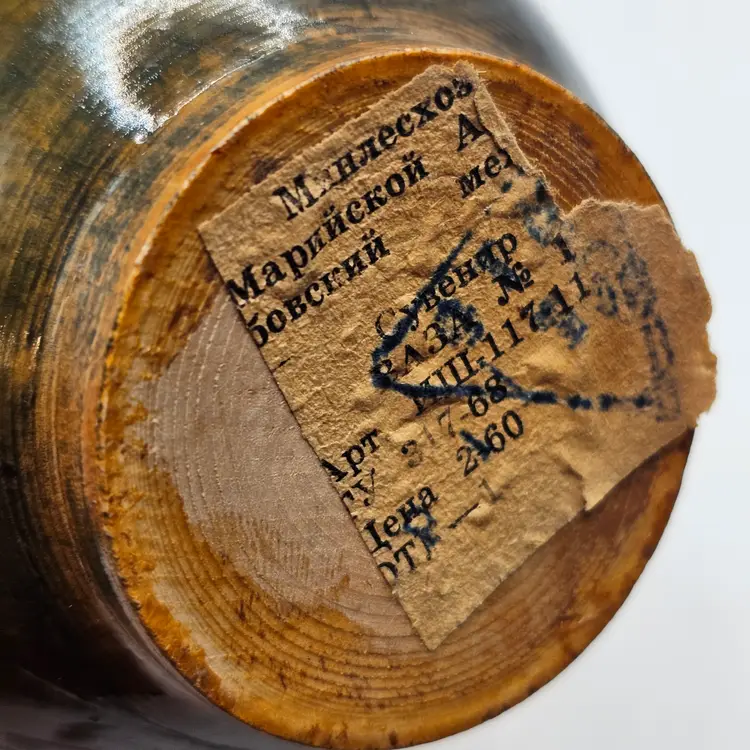 Минлесхоз
Марийской А
бовский мех
Сувенир
ВАЗА № 1
Арт МШ-117-11
ТУ 317-68
Цена 2-60
ОТК — 1